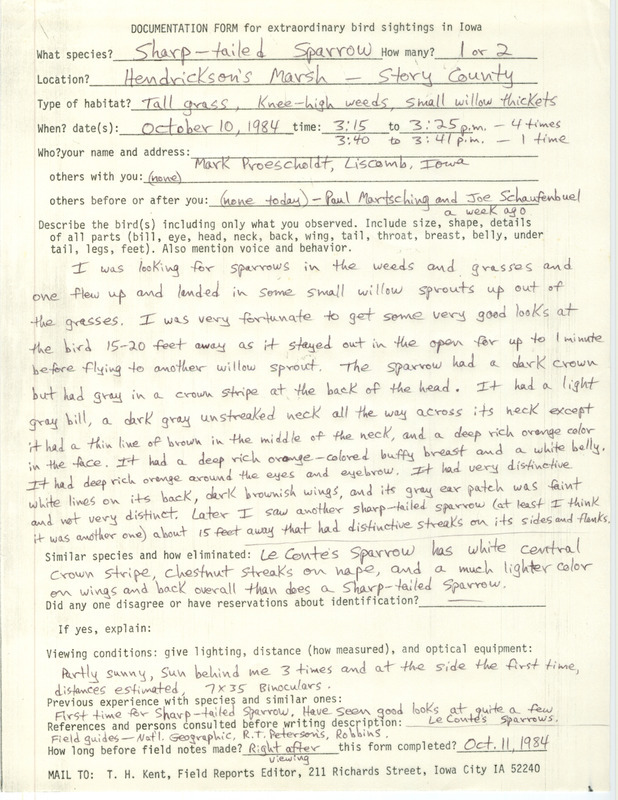 DOCUMENTATION FORM for extraordinary bird sightings in Iowa
What species? Sharp-tailed Sparrow How many? 1 or 2
Location? Hendrickson's Marsh - Story County
Type of habitat? Tall grass, Knee-high weeds, small willow thickets
When? date(s): October 10, 1984 time: 3:15 to 3:25 p.m. - 4 times
3:40 to 3:41 p.m. - 1 time
Who?your name and address:
Mark Proescholdt, Liscomb, Iowa
others with you: (none)
others before or after you: (none today) - Paul Martsching and Joe Schaufenbuel
a week ago
Describe the bird(s) including only what you observed. Include size, shape, details
of all parts (bill, eye, head, neck, back, wing, tail, throat, breast, belly, under
tail, legs, feet). Also mention voice and behavior.
I was looking for sparrows in the weeds and grasses and
one flew up and landed in some small willow sprouts up out of
the grasses. I was very fortunate to get some very good looks at
the bird 15-20 feet away as it stayed out in the open for up to 1 minute
before flying to another willow sprout. The sparrow had a dark crown
but had gray in a crown stripe at the back of the head. It had a light
gray bill, a dark gray unstreaked neck all the way across its neck except
it had a thin line of brown in the middle of the neck, and a deep rich orange color
in the face. It had a deep rich orange-colored buffy breast and a white belly.
It had deep rich orange around the eyes and eyebrow. It had very distinctive
white lines on its back, dark brownish wings, and its gray ear patch was faint
and not very distinct. Later I saw another sharp-tailed sparrow (at least I think
it was another one) about 15 feet away that had distinctive streaks on its sides and flanks.
Similar species and how eliminated: Le Conte's Sparrow has white central
crown stripe, chestnut streaks on nape, and a much lighter color
on wings and back overall than does a Sharp-tailed Sparrow.
Did any one disagree or have reservations about identification?
If yes, explain:
Viewing conditions: give lighting, distance (how measured), and optical equipment:
Partly sunny, Sun behind me 3 times and at the side the first time,
distances estimated, 7X35 Binoculars.
Previous experience with species and similar ones:
First time for Sharp-tailed Sparrow, Have seen good looks at quite a few
References and persons consulted before writing description: Le Conte's Sparrows.
Field guides - Nat'l. Geographic, R.T. Peterson's, Robbins.
How long before field notes made? Right after this form completed? Oct. 11, 1984
viewing
MAIL TO: T. H. Kent, Field Reports Editor, 211 Richards Street, Iowa City IA 52240